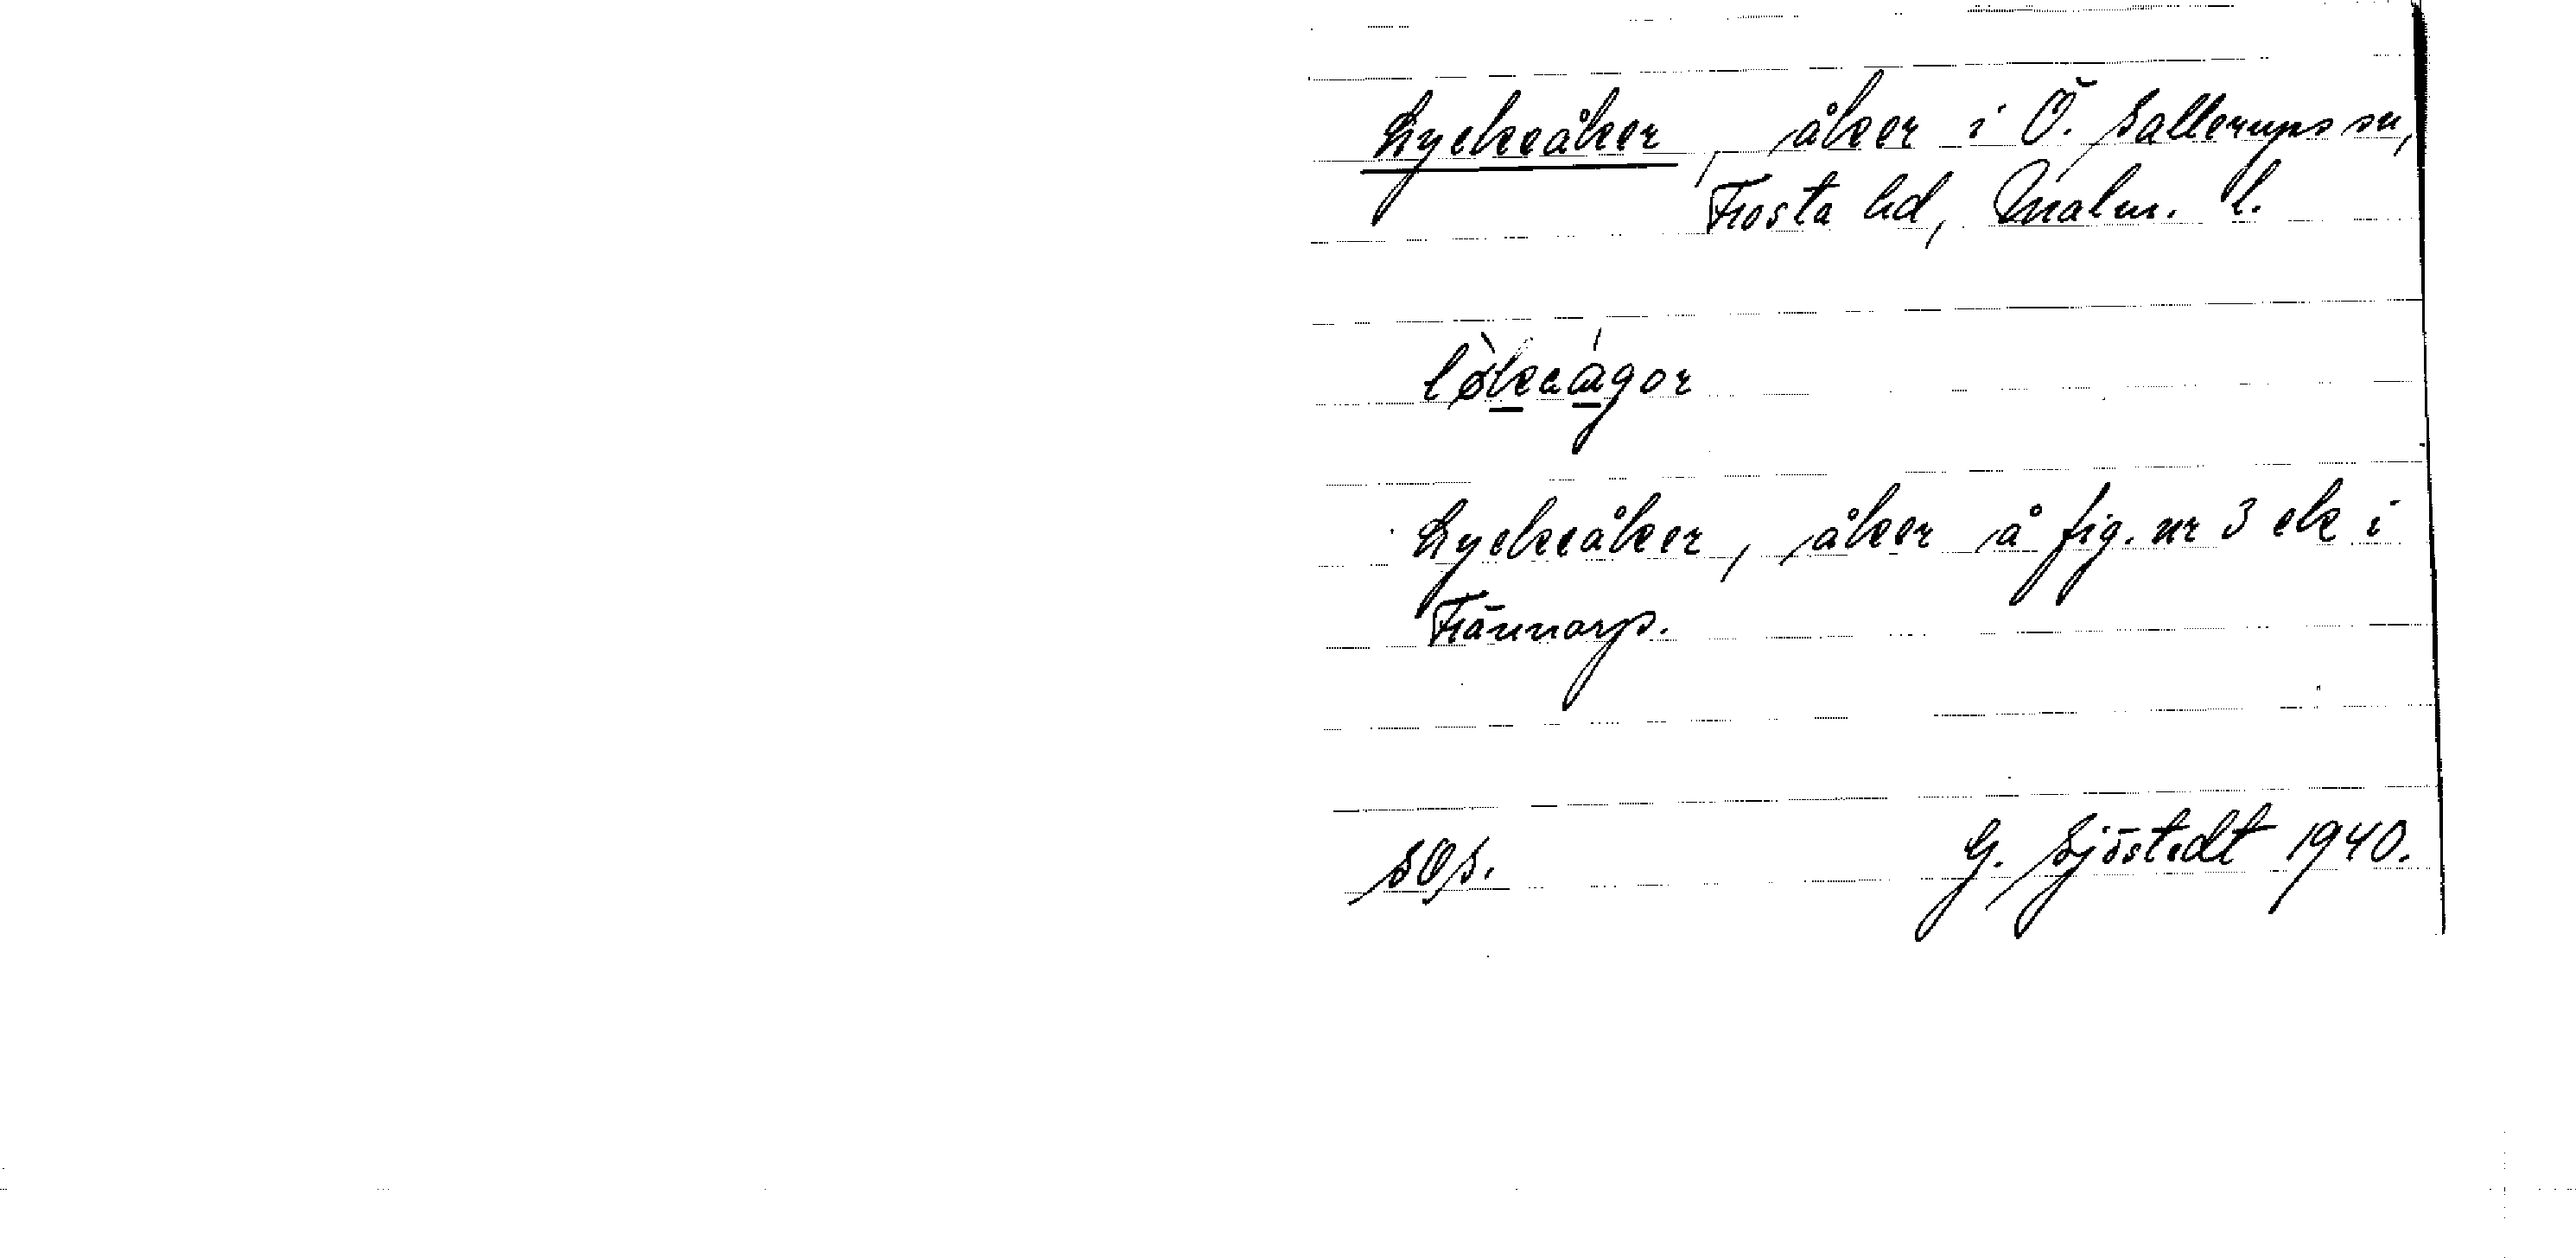 Lyckeåker, åker i Ö. Sallerups sn,
Frosta hd, Malm. l.
Lyckeåker, åker å fig. nr 3 ek i
Frännarp.
SOS. G. Sjöstedt 1940.